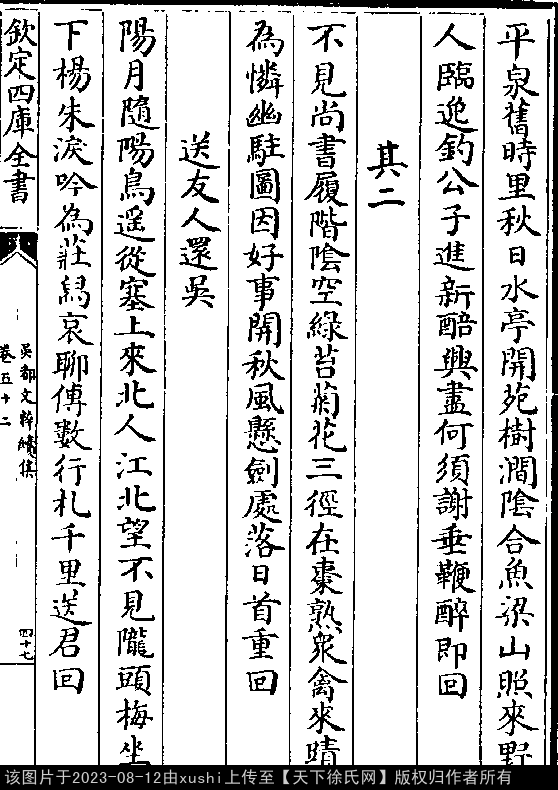 平泉舊時里秋日水亭開苑樹澗陰合魚梁山照來野
人臨遊釣公子進新醅興盡何須謝垂鞭醉即回
其二
不見尚書履階陰空綠苔菊花三徑在棗熟衆禽來晴
為憐幽駐圖因好事開秋風懸劍處落日首重回
送友人還吳
陽月隨陽鳥遥從塞上來北人江北望不見隴頭梅坐
下楊朱淚吟為莊舄哀聊傳數行札千里送君回
欽定四庫全書
吳都文粹續集
卷五十二
四十七
该图片于2023-08-12由xushi上传至【天下徐氏网】版权归作者所有